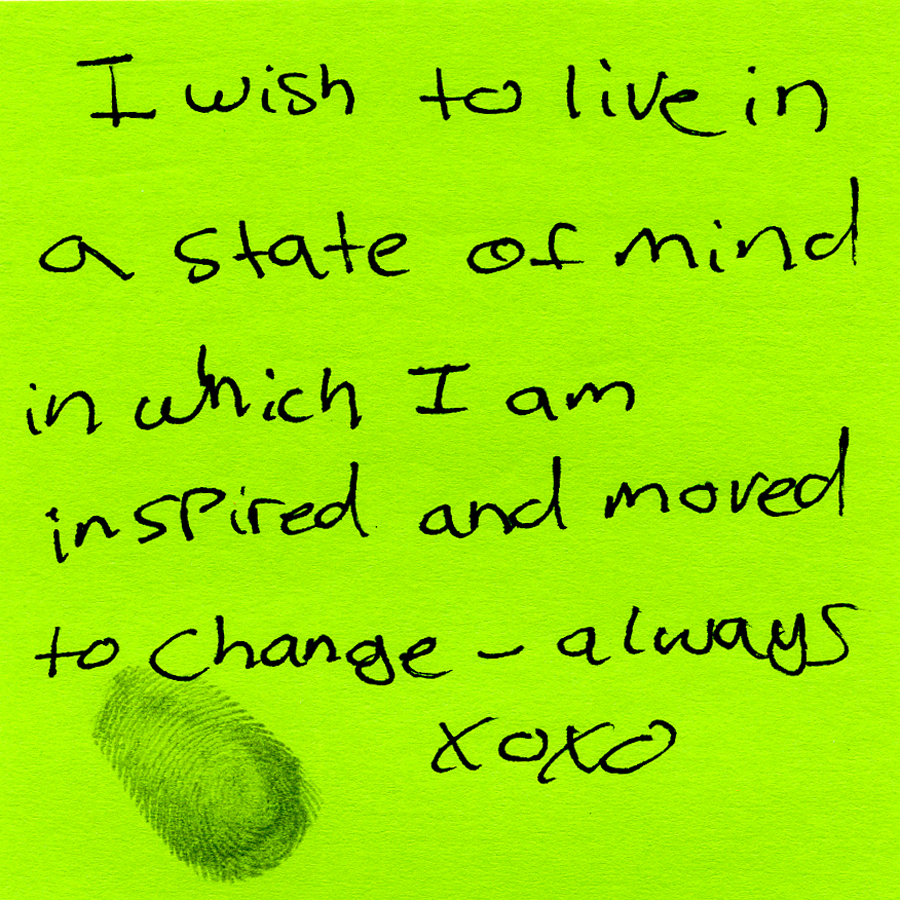 I wish to live in
a state of mind
in which I am
inspired and moved
to change - always
xoxo